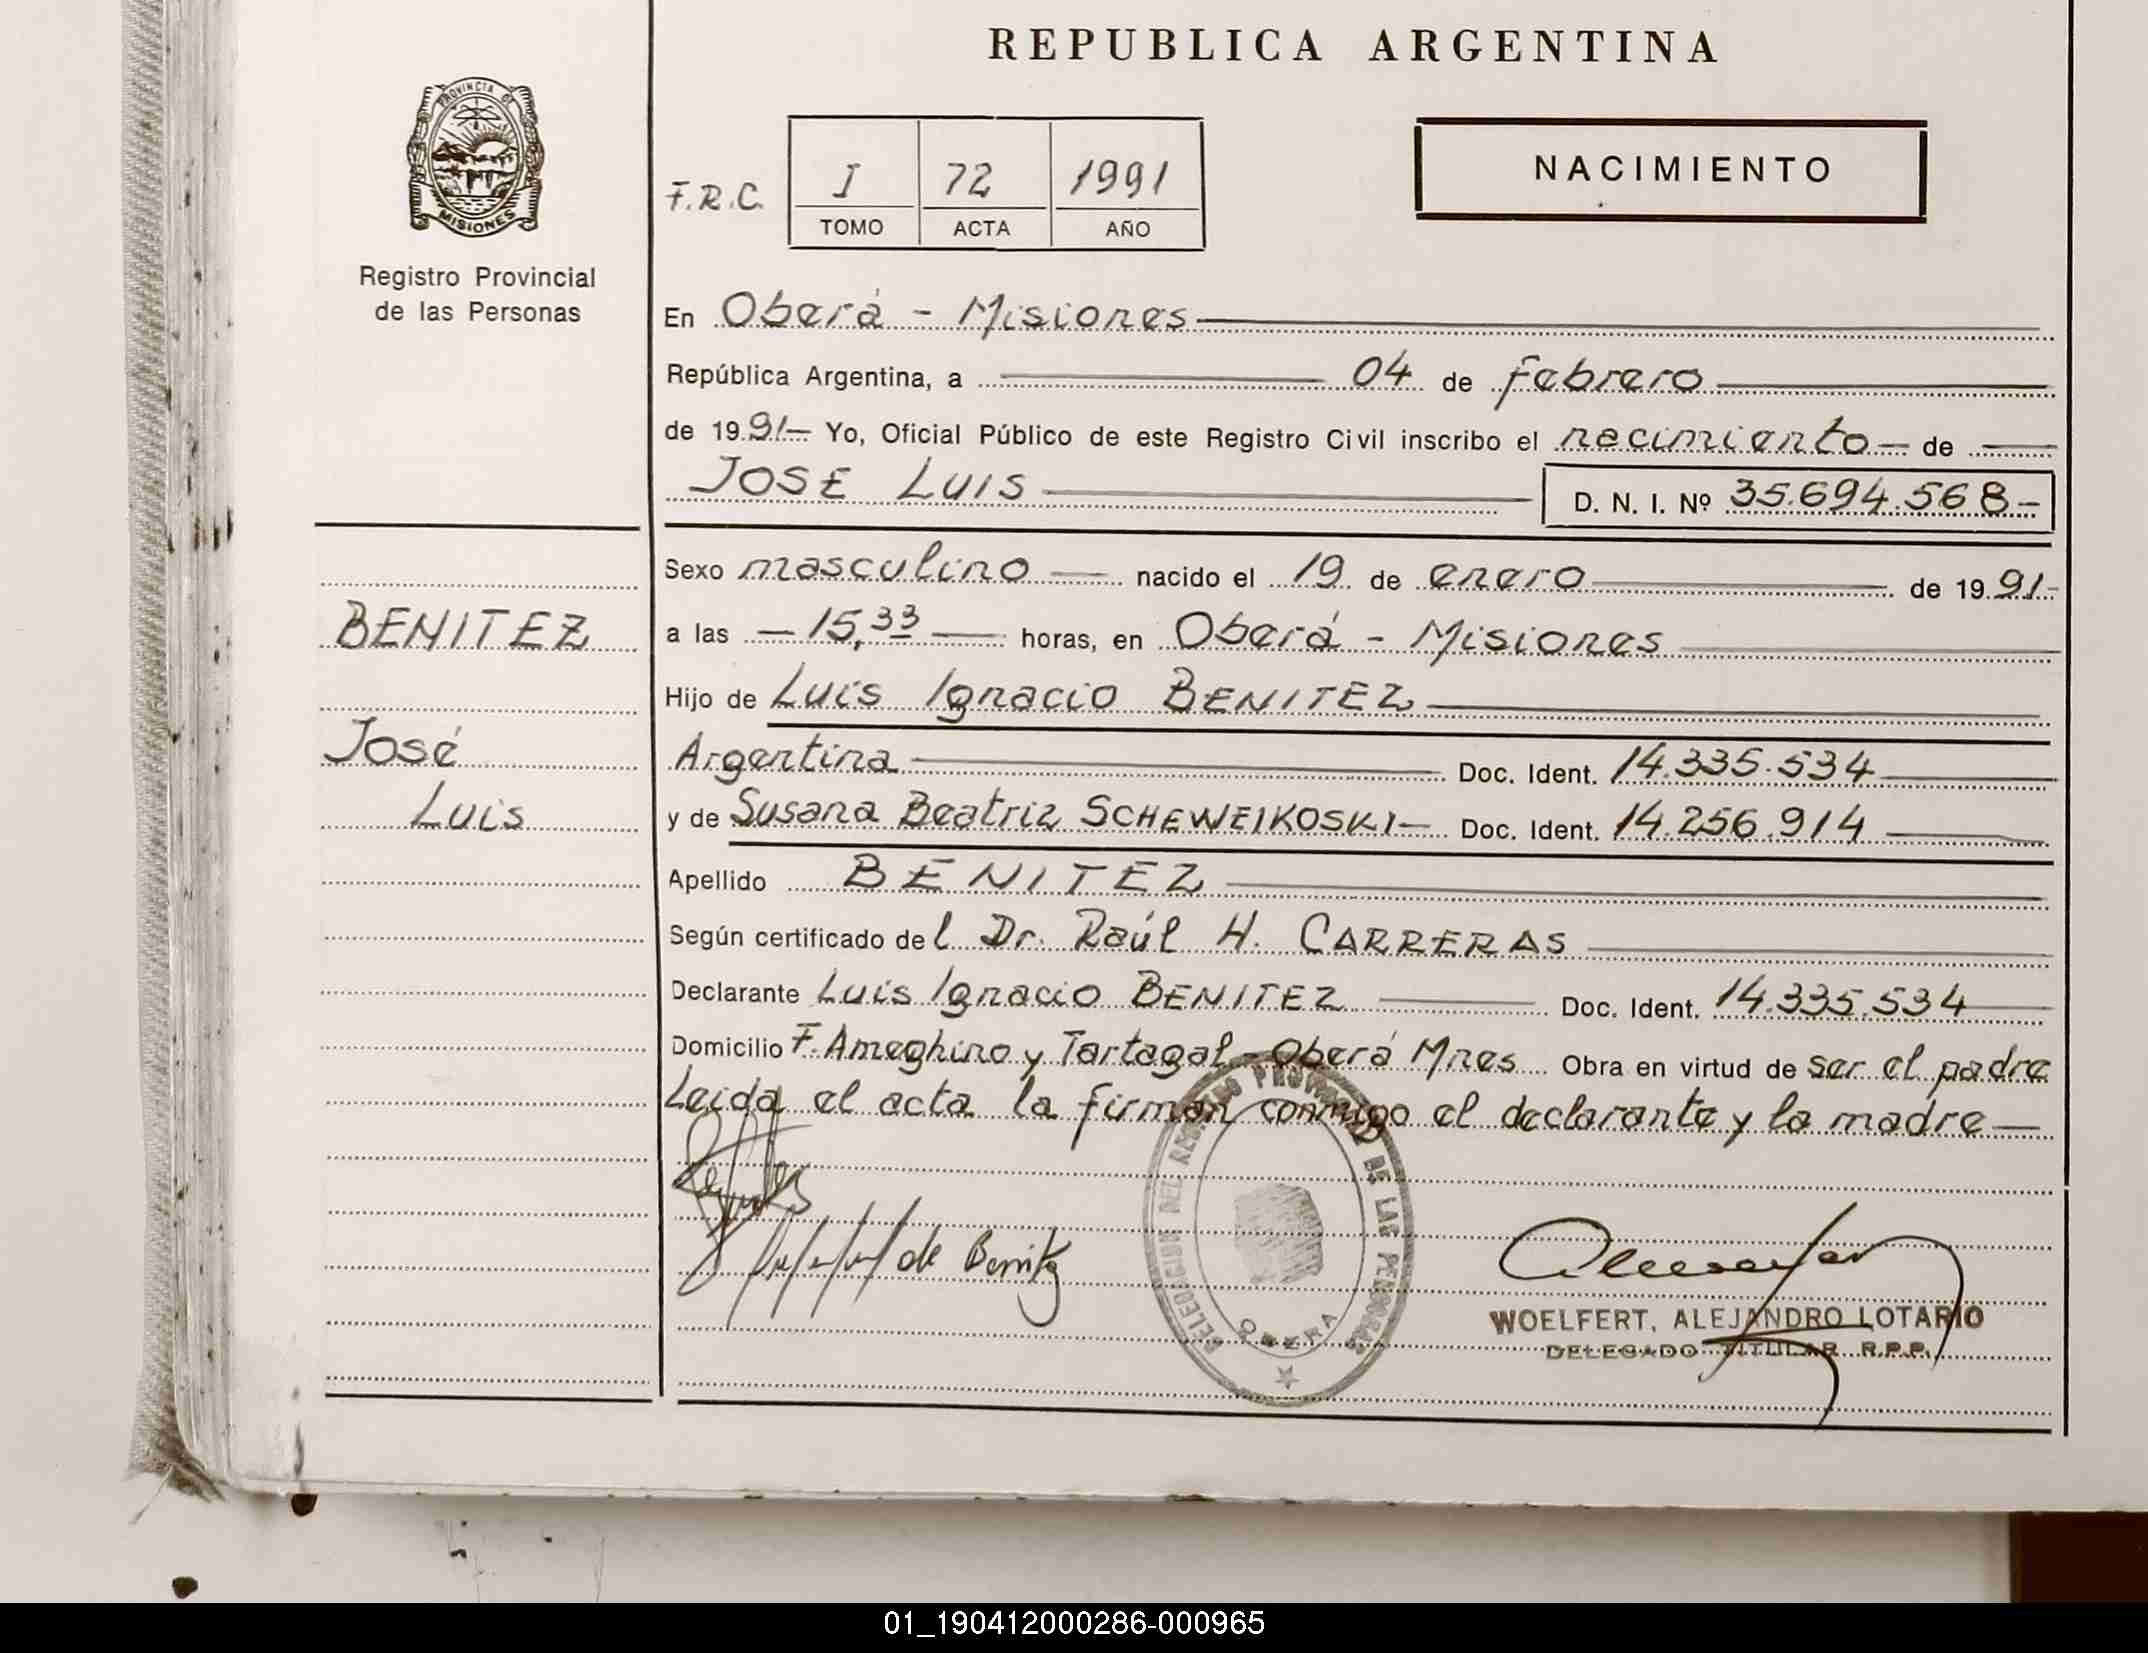 REPUBLICA ARGENTINA
PROVINCIA DE
MISIONES
Registro Provincial
de las Personas
NACIMIENTO
F.R.C. I 72 1991
TOMO ACTA AÑO
En Oberá - Misiones
República Argentina, a 04 de febrero
de 1991- Yo, Oficial Público de este Registro Civil inscribo el nacimiento - de
JOSE LUIS D. N. I. Nº 35.694.568-
Sexo masculino nacido el 19 de enero de 1991-
BENITEZ
a las - 15,33 horas, en Oberá - Misiones
Hijo de Luis Ignacio BENITEZ
José
Argentina Doc. Ident. 14.335.534
Luis
y de Susana Beatriz SCHEWEIKOSKI- Doc. Ident. 14.256.914
Apellido BENITEZ
Según certificado del Dr. Raúl H. CARRERAS
Declarante Luis Ignacio BENITEZ Doc. Ident. 14.335.534
Domicilio F. Ameghino y Tartagal - Oberá Mnes Obra en virtud de ser el padre
Leida el acta la firman conmigo el declarante y la madre
DELEGACION DEL REGISTRO PROVINCIAL DE LAS PERSONAS
OBERA
de Benitez
WOELFERT, ALEJANDRO LOTARIO
DELEGADO TITULAR R.P.P.
01_190412000286-000965